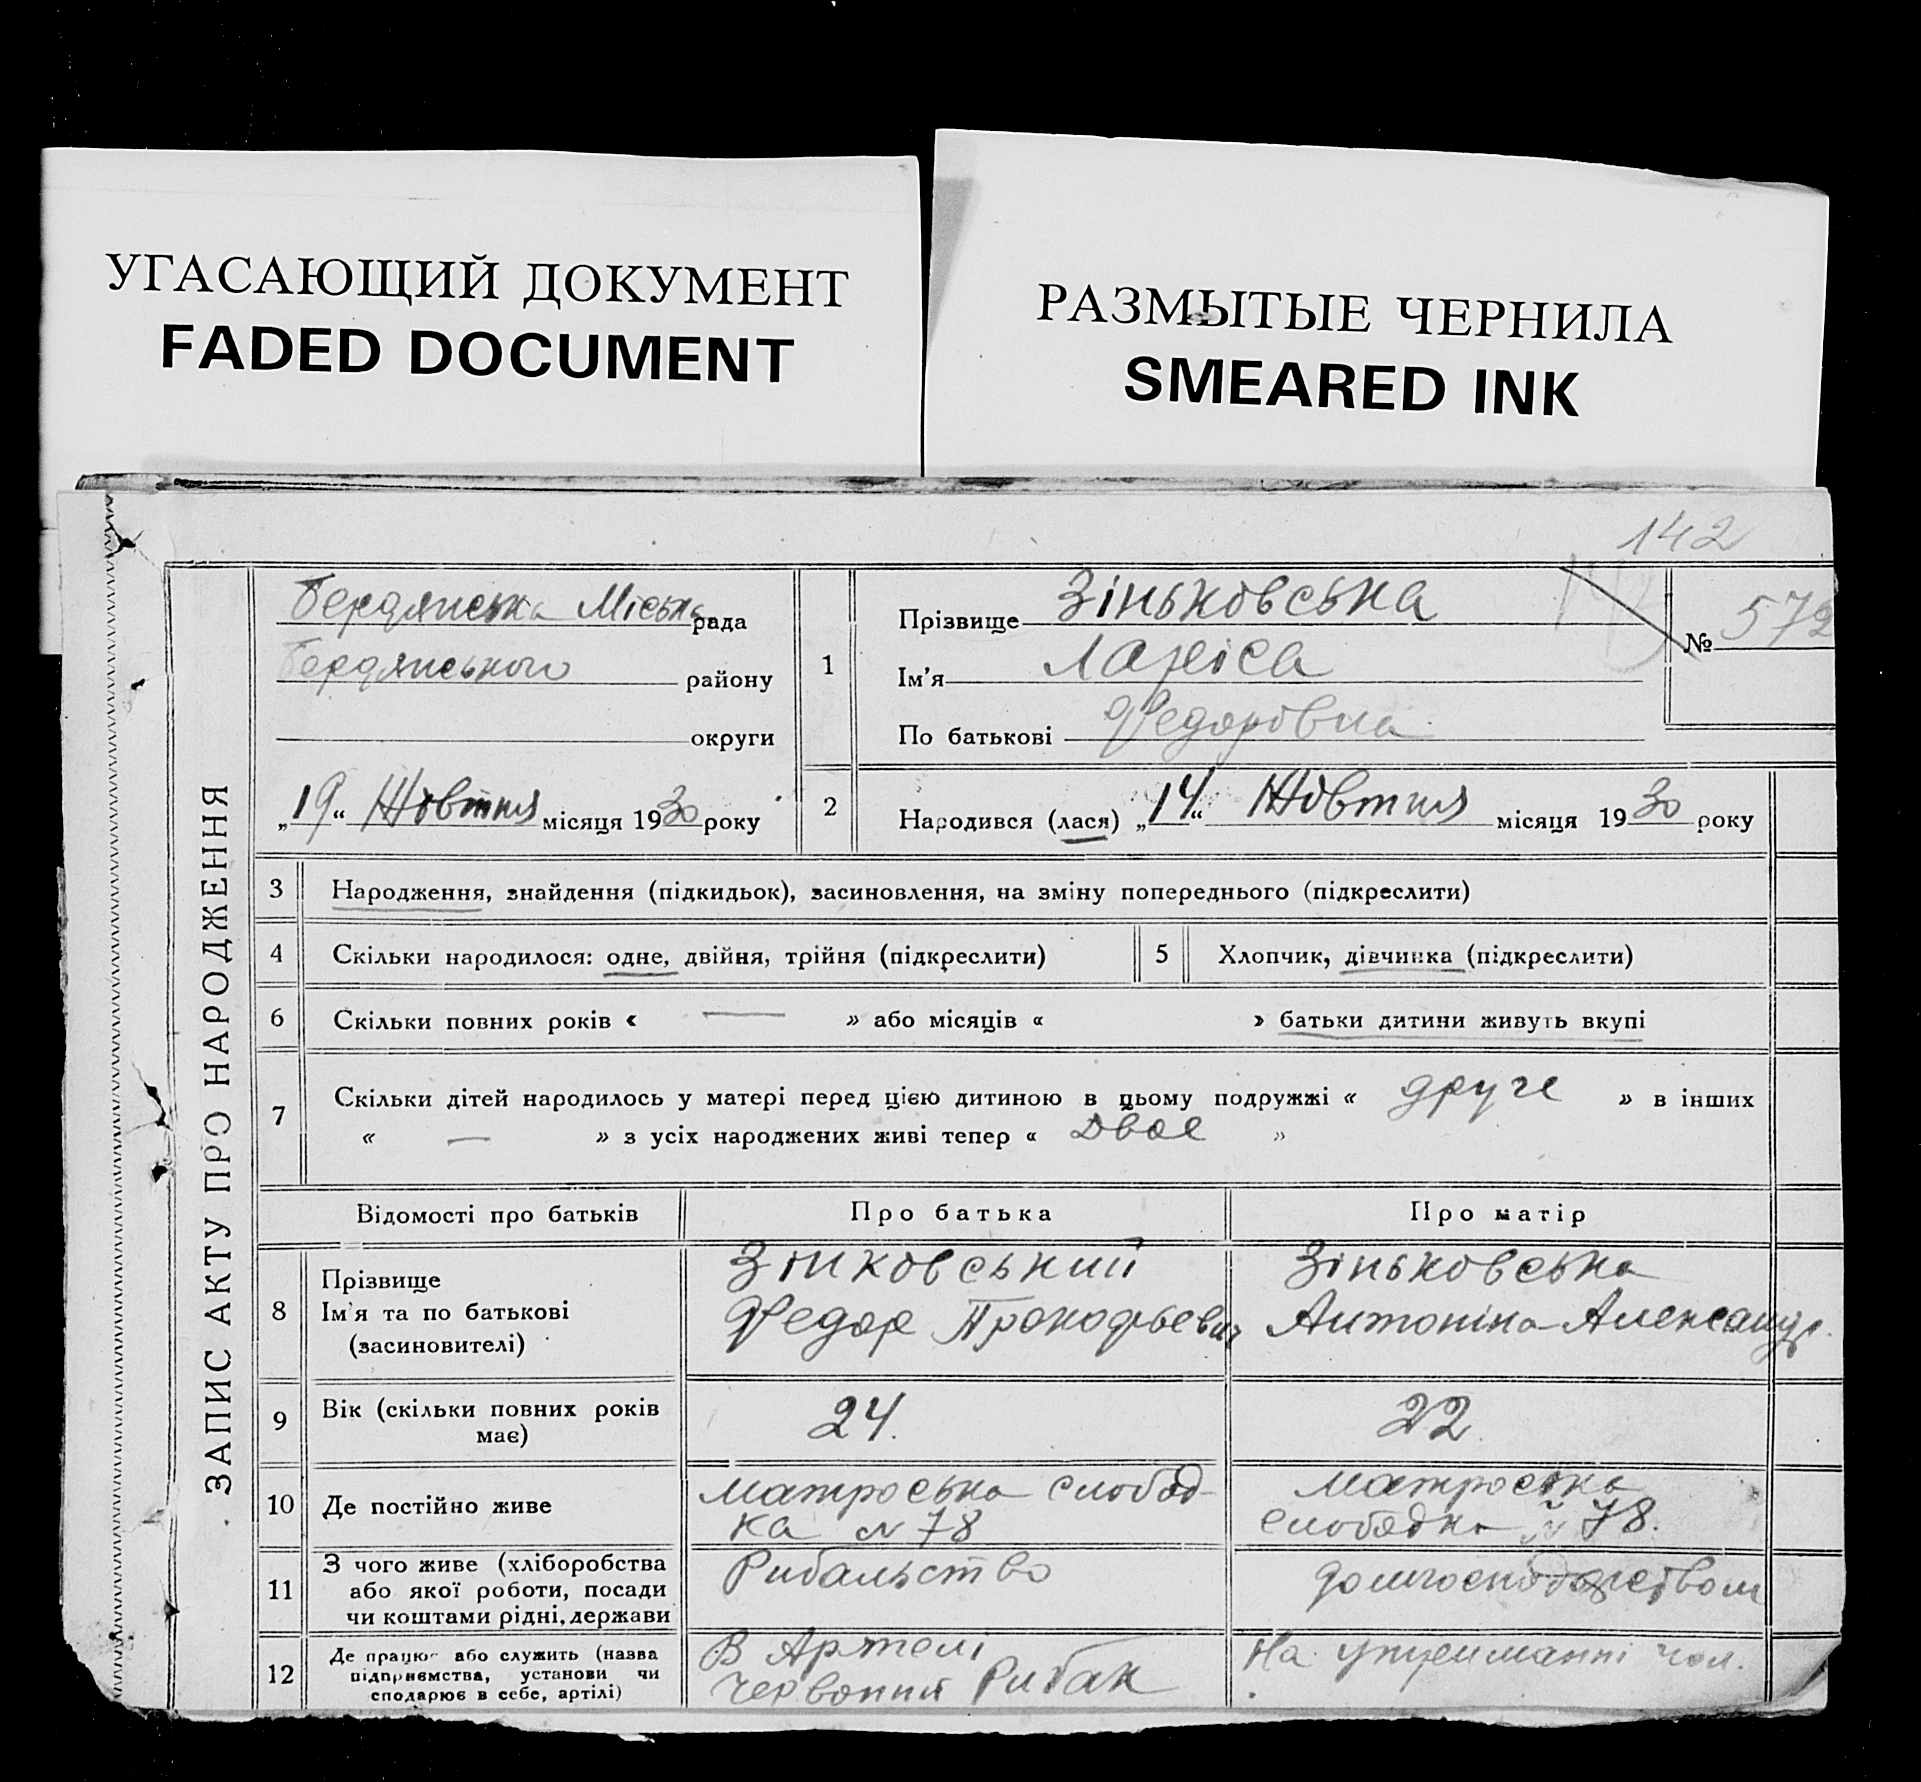 УГАСАЮЩИЙ ДОКУМЕНТ
FADED DOCUMENT
РАЗМЫТЫЕ ЧЕРНИЛА
SMEARED INK
142
ЗАПИС АКТУ ПРО НАРОДЖЕННЯ
Бердянська Міська рада
Бердянського району
округи
„19“ Жовтня місяця 1930 року
1
Прізвище Зіньковська
Ім'я Ларіса
По батькові Федоровна
№ 572
2
Народився (лася) „14“ Жовтня місяця 1930 року
3 Народження, знайдення (підкидьок), засиновлення, на зміну попереднього (підкреслити)
4 Скільки народилося: одне, двійня, трійня (підкреслити)
5 Хлопчик, дівчинка (підкреслити)
6 Скільки повних років « — » або місяців « » батьки дитини живуть вкупі
7 Скільки дітей народилось у матері перед цією дитиною в цьому подружжі « друге » в інших
« — » з усіх народжених живі тепер « Двое »
Відомості про батьків
Про батька
Про матір
8 Прізвище
Ім'я та по батькові
(засиновителі)
Зінковський
Федор Прокофьевич
Зіньковська
Антоніна Александр.
9 Вік (скільки повних років
має)
24.
22.
10 Де постійно живе
матроська слобод-
ка № 78
матроська
слободка № 78.
11 З чого живе (хліборобства
або якої роботи, посади
чи коштами рідні, держави
Рибальство
домгосподарством
12 Де працює або служить (назва
підприємства, установи чи
сподарює в себе, артілі)
В Артелі
Червоний Рибак
На утриманні чол.